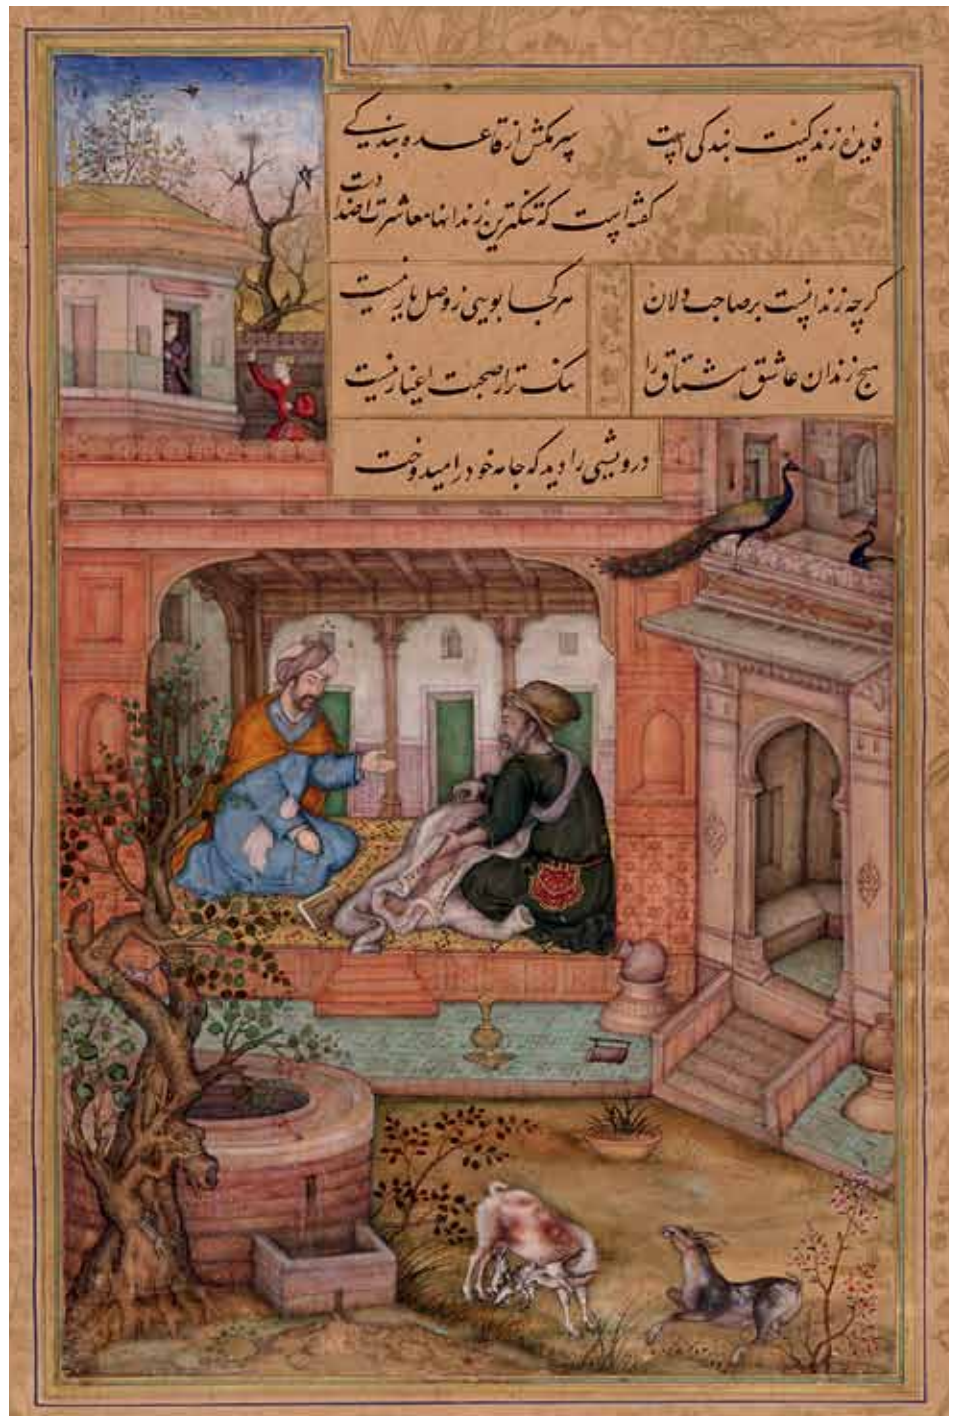 فایده زندگیت بندگی است سر مکش از قاعده بندگی
گفته است که تنگترین زندانها معاشرت اضدادست
گرچه زندانست بر صاحب دلان هر کجا بویی ز وصل یار نیست
هیچ زندان عاشق مشتاق را تنگ تر از صحبت اغیار نیست
درویشی را دید که جامه خود را میدوخت